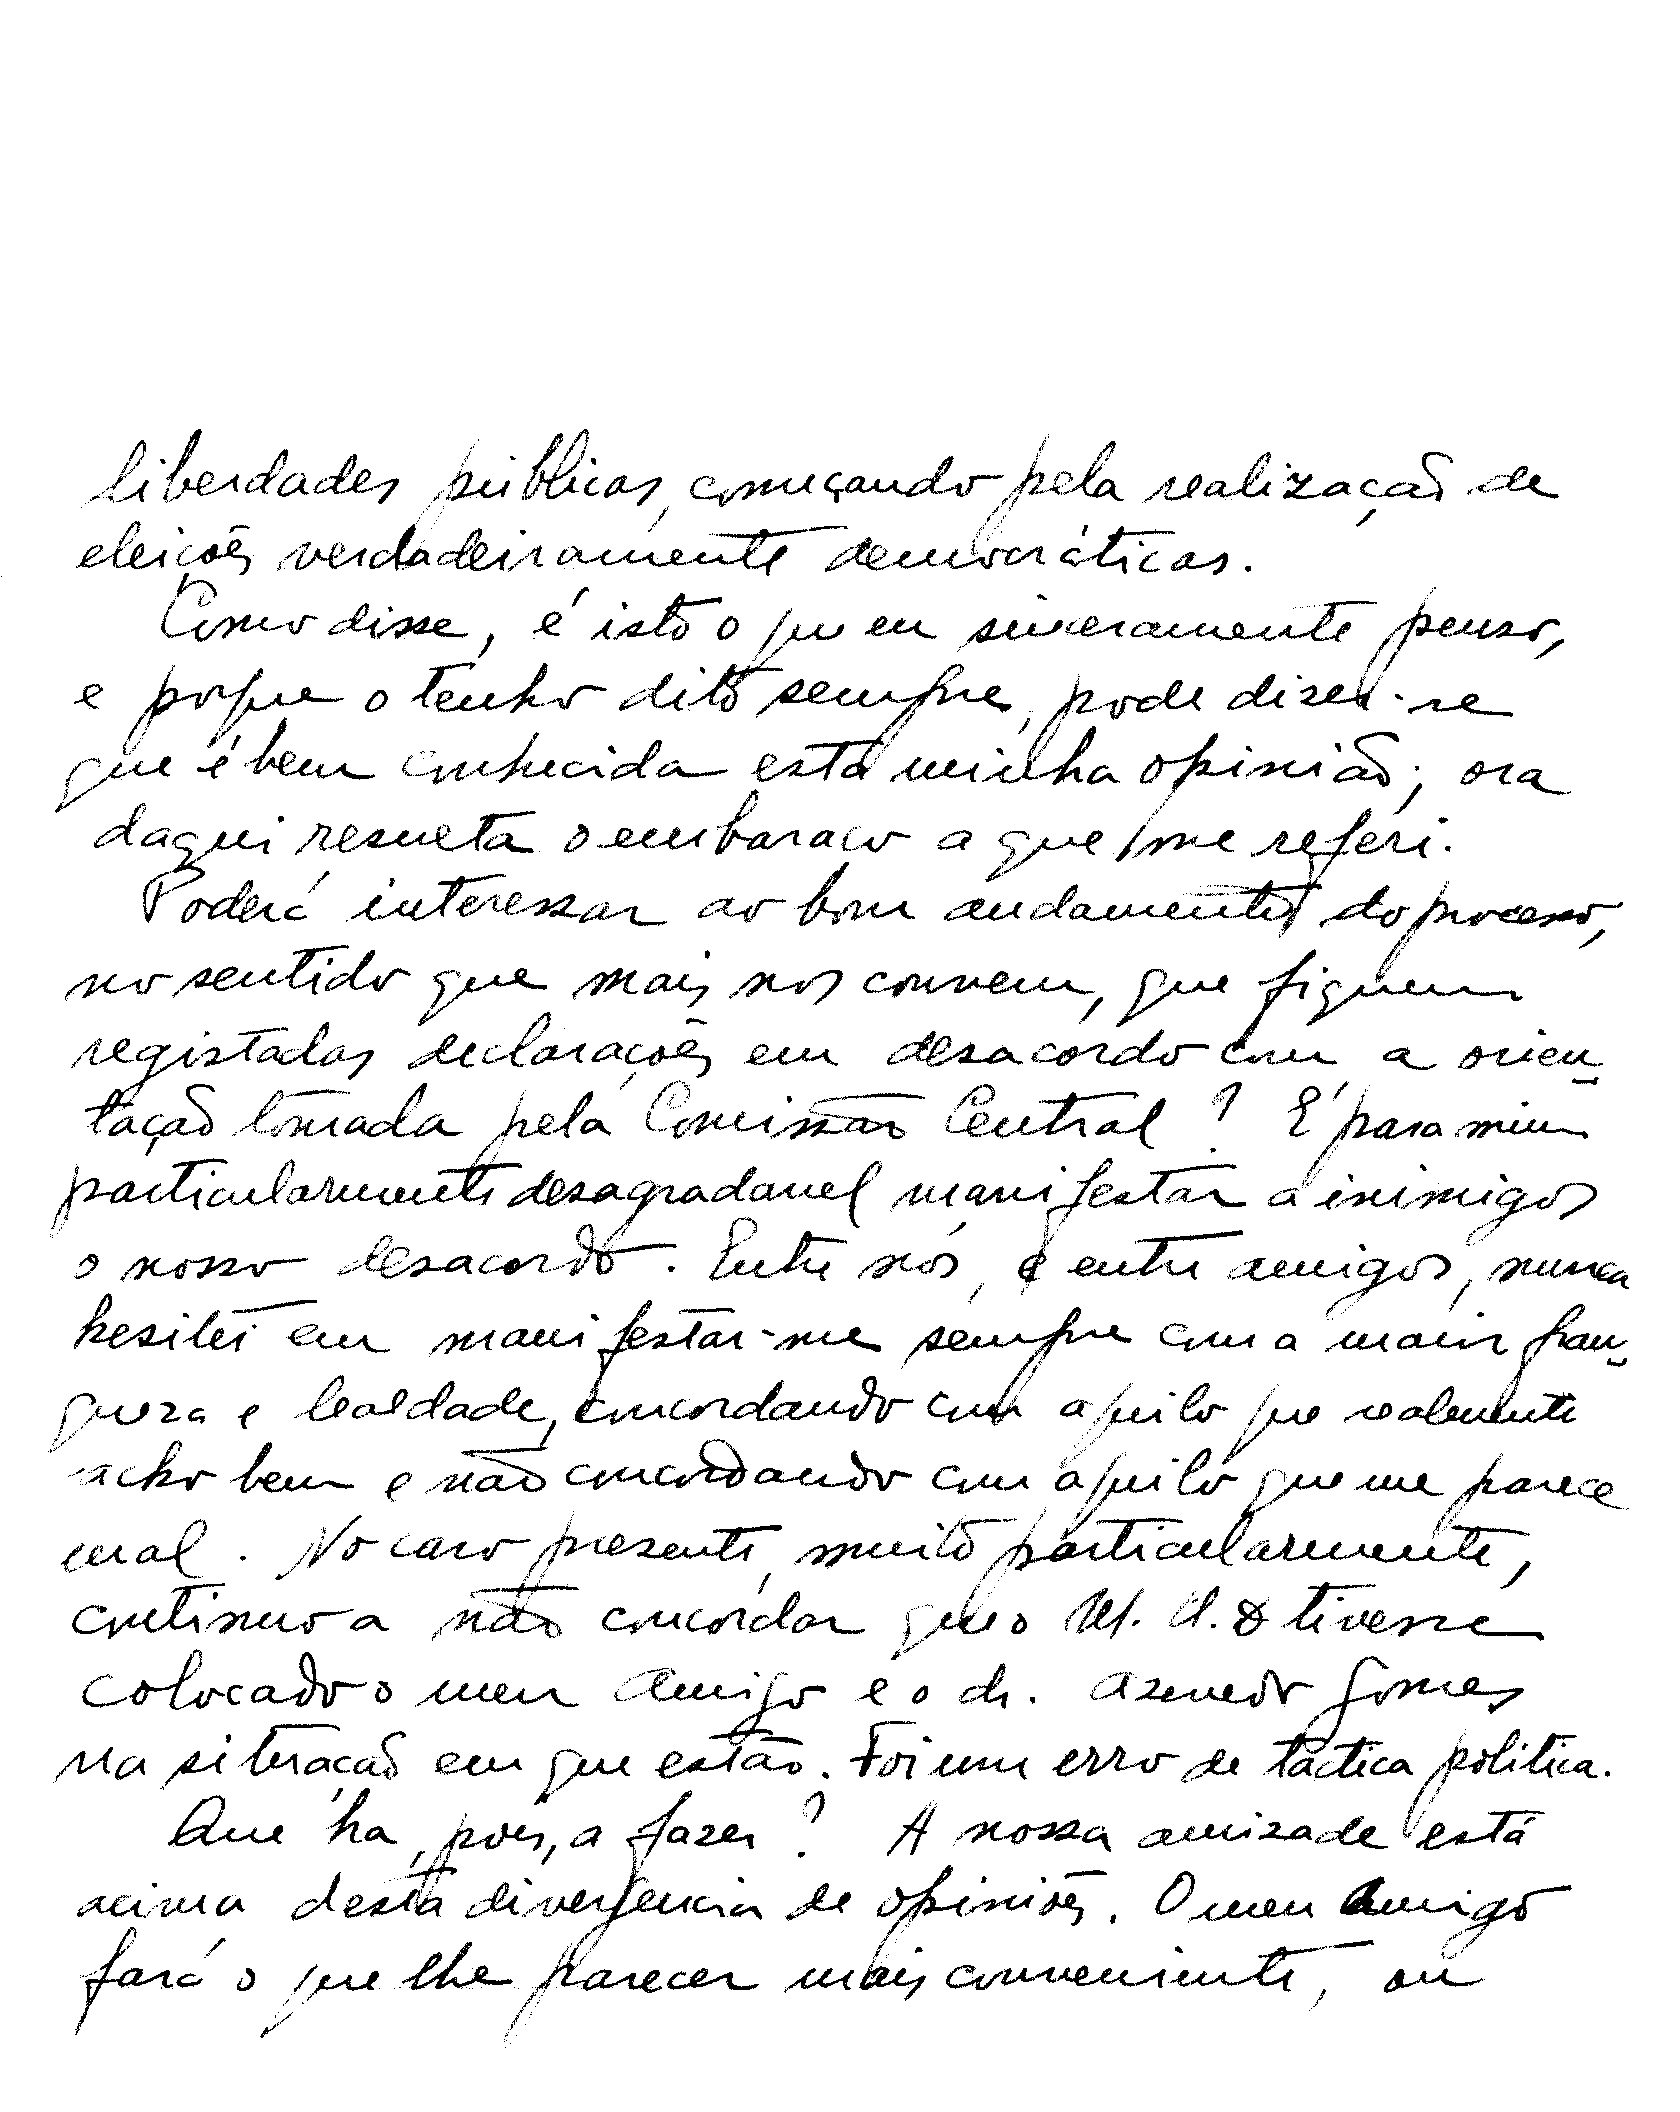 liberdades públicas, começando pela realização de
eleições verdadeiramente democráticas.
Como disse, é isto o que eu sinceramente penso,
e porque o tenho dito sempre, pode dizer-se
que é bem conhecida esta minha opinião; ora
daqui resulta o embaraço a que me referi.
Poderá interessar ao bom andamento do processo,
no sentido que mais nos convem, que fiquem
registadas declarações em desacordo com a orien-
tação tomada pela Comissão Central? É para mim
particularmente desagradavel manifestar a inimigos
o nosso desacordo. Entre nós, e entre amigos, nunca
hesitei em manifestar-me sempre com a maior fran-
queza e lealdade, concordando com aquilo que realmente
acho bem e não concordando com aquilo que me parece
mal. No caso presente, muito particularmente,
continuo a não concordar que o M. N. D. tivesse
colocado o meu Amigo e o dr. Azevedo Gomes
na situação em que estão. Foi um erro de tactica politica.
Que ha, pois, a fazer? A nossa amizade está
acima desta divergencia de opiniões. O meu Amigo
fará o que lhe parecer mais conveniente, ou